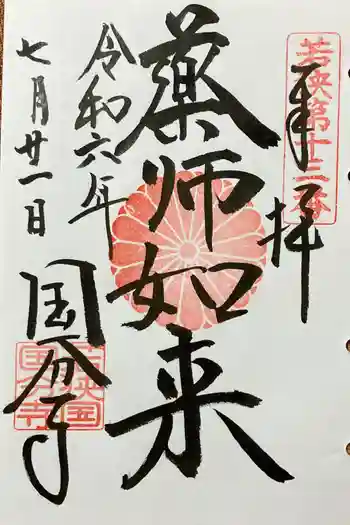 奉拝
若狭第十三番
薬師如来
令和六年
七月廿一日
国分寺
若狭国
国分寺